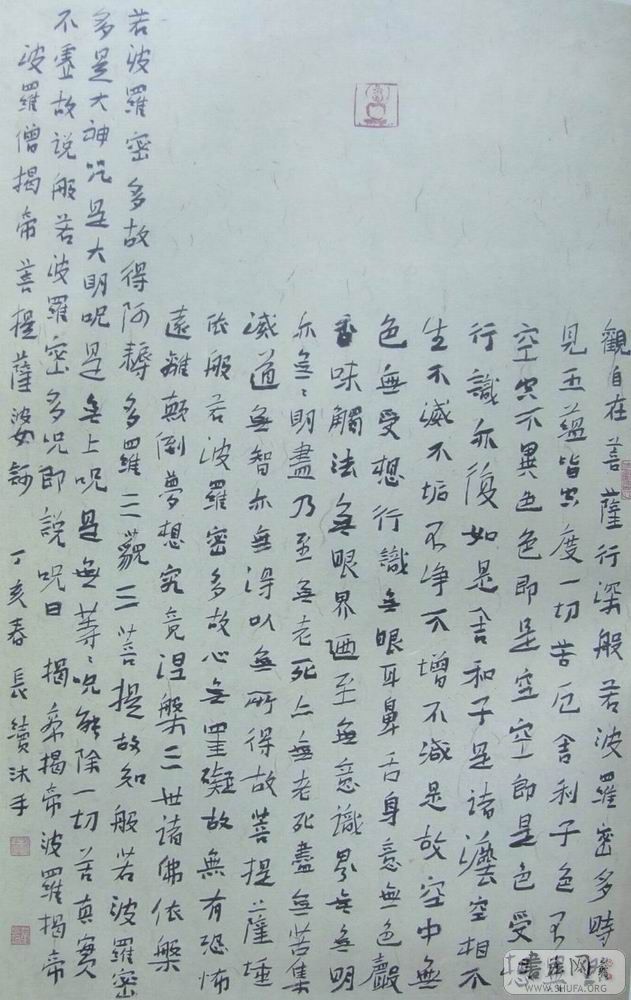 觀自在菩薩行深般若波羅密多時照
見五蘊皆空度一切苦厄舍利子色不異
空空不異色色即是空空即是色受想
行識亦復如是舍和子是諸灋空相不
生不滅不垢不净不增不減是故空中無
色無受想行識無眼耳鼻舌身意無色聲
香味觸法無眼界迺至無意識界無無明
亦無〻明盡乃至無老死亦無老死盡無苦集
滅道無智亦無得以無所得故菩提薩埵
依般若波羅密多故心無罣礙故無有恐怖
遠離顛倒夢想究竟涅槃三世諸佛依槃
若波羅密多故得阿耨多羅三藐三菩提故知般若波羅密
多是大神咒是大明呪是無上呪是無等〻呪能除一切苦真實
不虛故說般若波羅密多咒即說呪曰 揭帝揭帝波羅揭帝
波羅僧揭帝菩提薩婆訶 丁亥春長續沐手
书法网
WWW.SHUFA.ORG